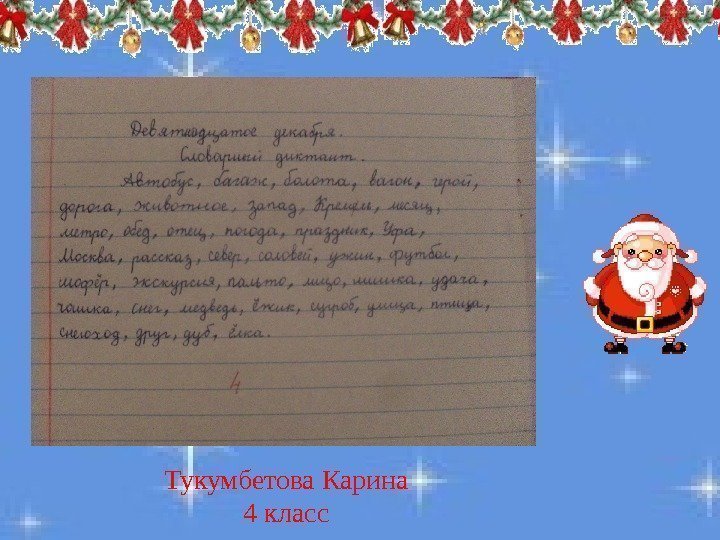 Девятнадцатое декабря.
Словарный диктант.
Автобус, багаж, болота, вагон, герой,
дорога, животное, запад, Кремль, месяц,
метро, обед, отец, погода, праздник,
Москва, рассказ, север, соловей, ужин, футбол,
шофёр, экскурсия, пальто, лицо, машина, удача,
чашка, снег, медведь, ёжик, сугроб, улица, птица,
снегоход, друг, дуб, ёлка.
4
Тукумбетова Карина
4 класс